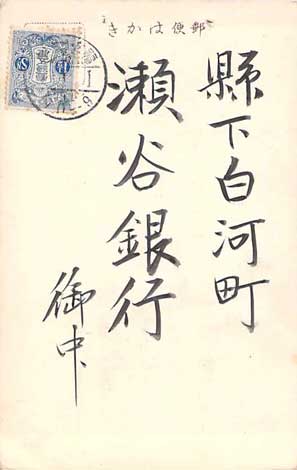 郵便はかき
縣下白河町
瀬谷銀行
御中